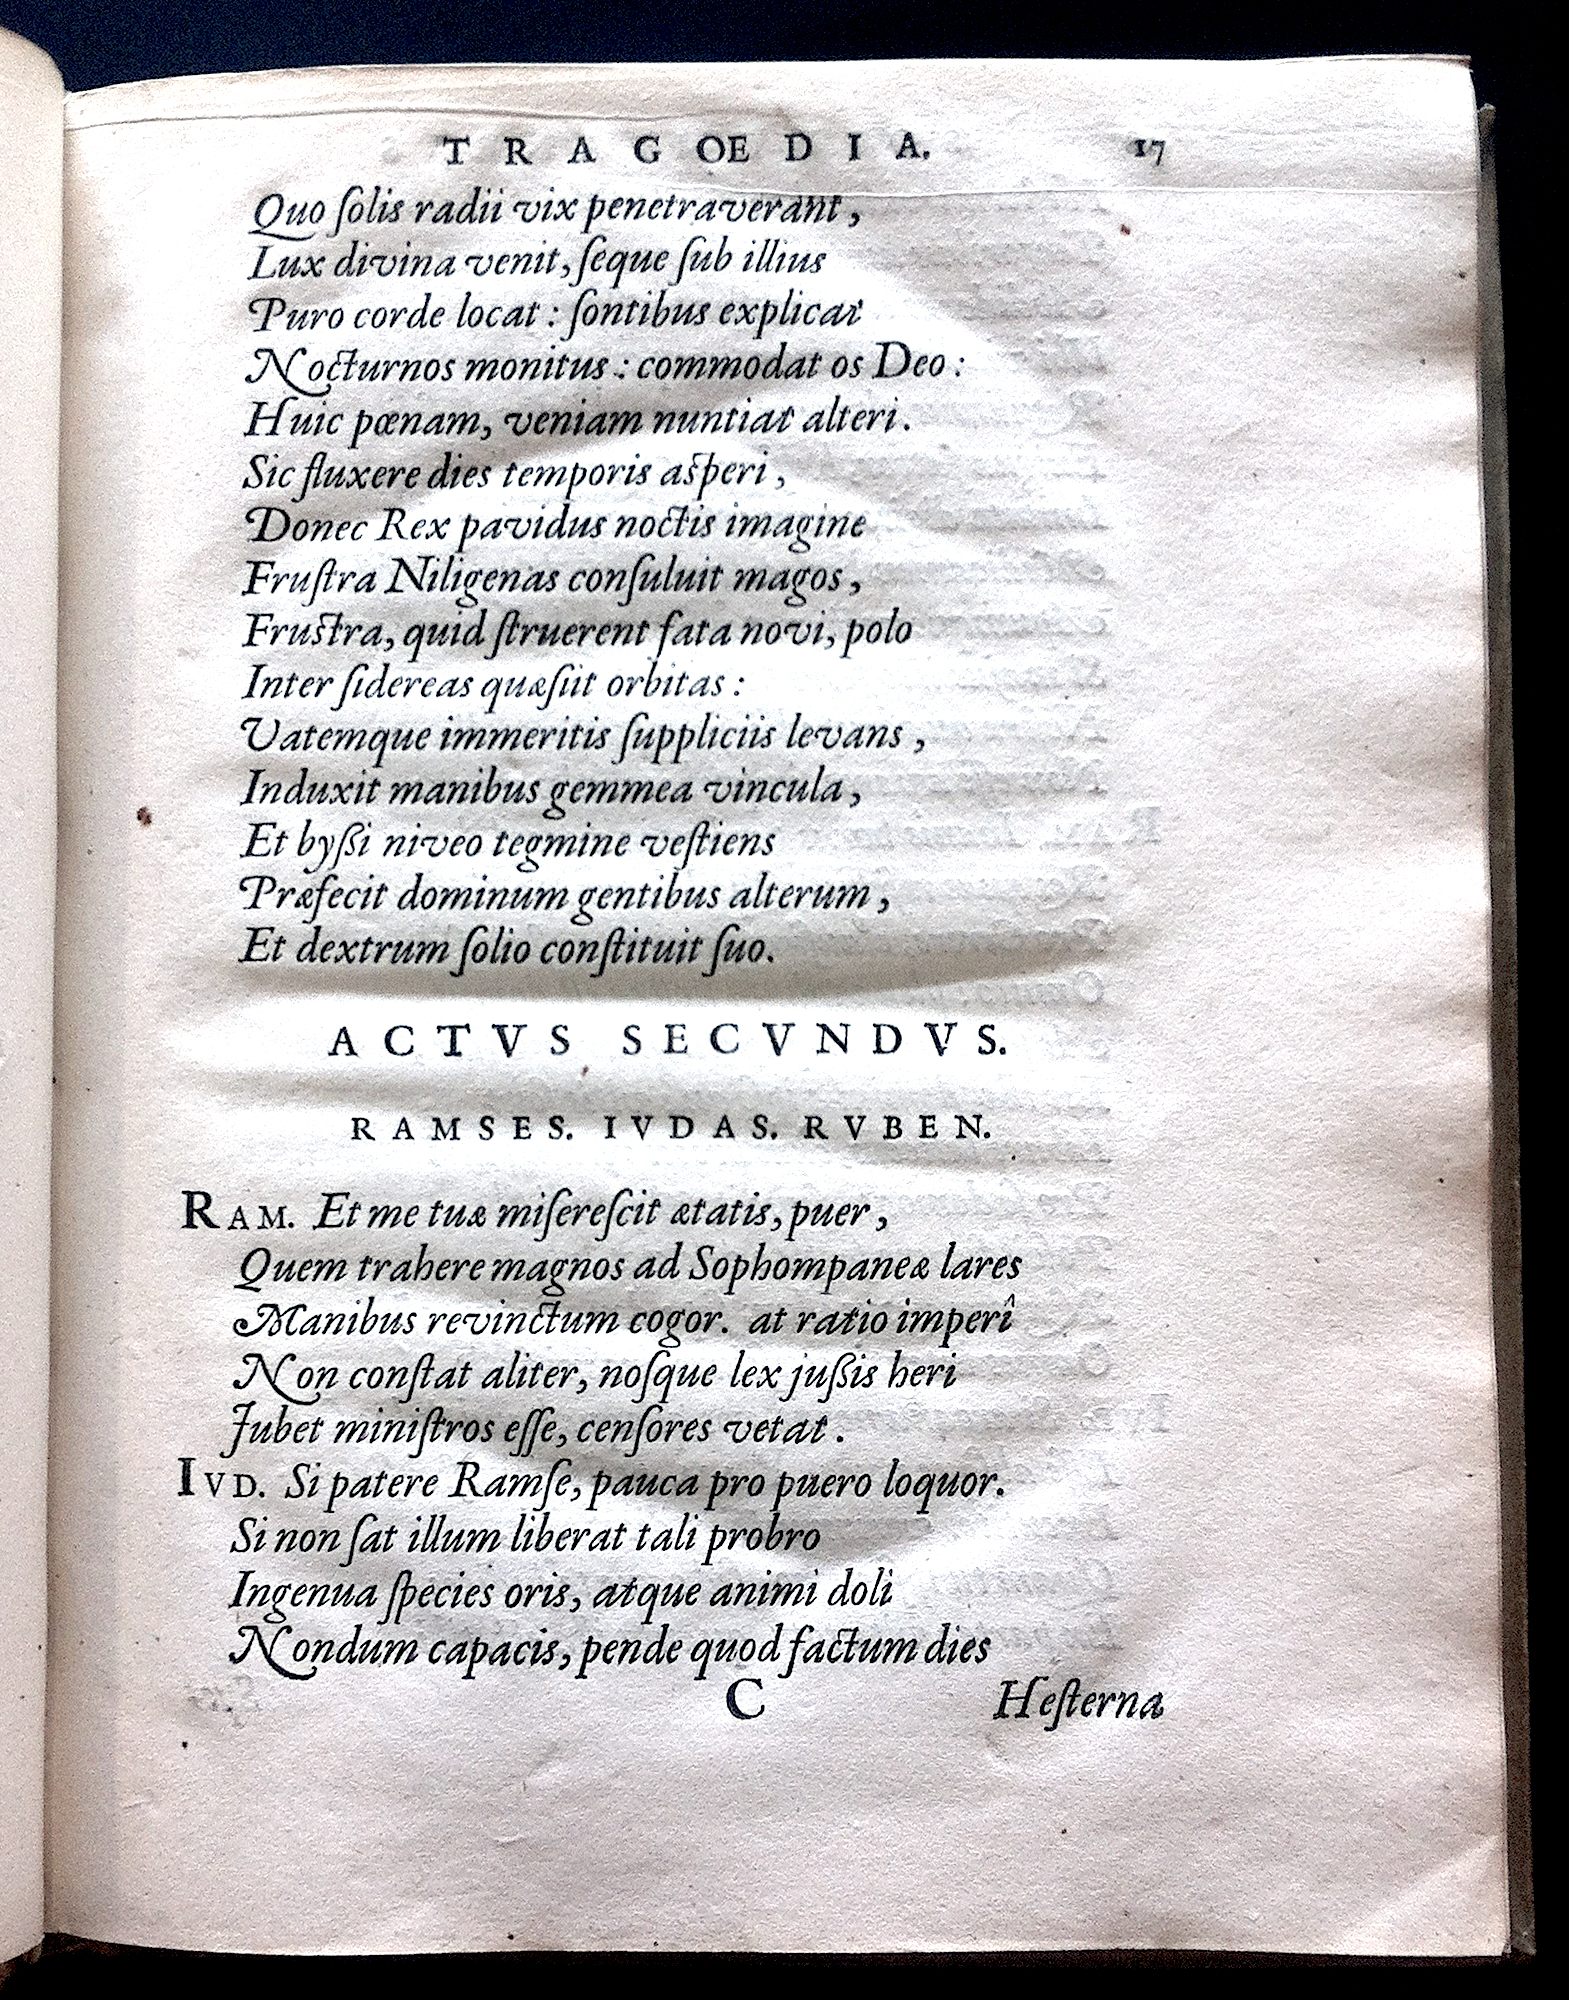 TRAGŒDIA. 17
Quo ſolis radii vix penetraverant,
Lux divina venit, ſeque ſub illius
Puro corde locat: ſontibus explicat
Nocturnos monitus: commodat os Deo:
Huic pœnam, veniam nuntiat alteri.
Sic fluxere dies temporis aſperi,
Donec Rex pavidus noctis imagine
Fruſtra Niligenas conſuluit magos,
Fruſtra, quid ſtruerent fata novi, polo
Inter ſidereas quæſiit orbitas:
Vatemque immeritis ſuppliciis levans,
Induxit manibus gemmea vincula,
Et byßi niveo tegmine veſtiens
Præfecit dominum gentibus alterum,
Et dextrum ſolio conſtituit ſuo.
ACTVS SECVNDVS.
RAMSES. IVDAS. RVBEN.
RAM. Et me tuæ miſereſcit ætatis, puer,
Quem trahere magnos ad Sophompaneæ lares
Manibus revinctum cogor. at ratio imperî
Non conſtat aliter, noſque lex jußis heri
Jubet miniſtros eſſe, cenſores vetat.
IVD. Si patere Ramſe, pauca pro puero loquor.
Si non ſat illum liberat tali probro
Ingenua ſpecies oris, atque animi doli
Nondum capacis, pende quod factum dies
C Heſterna